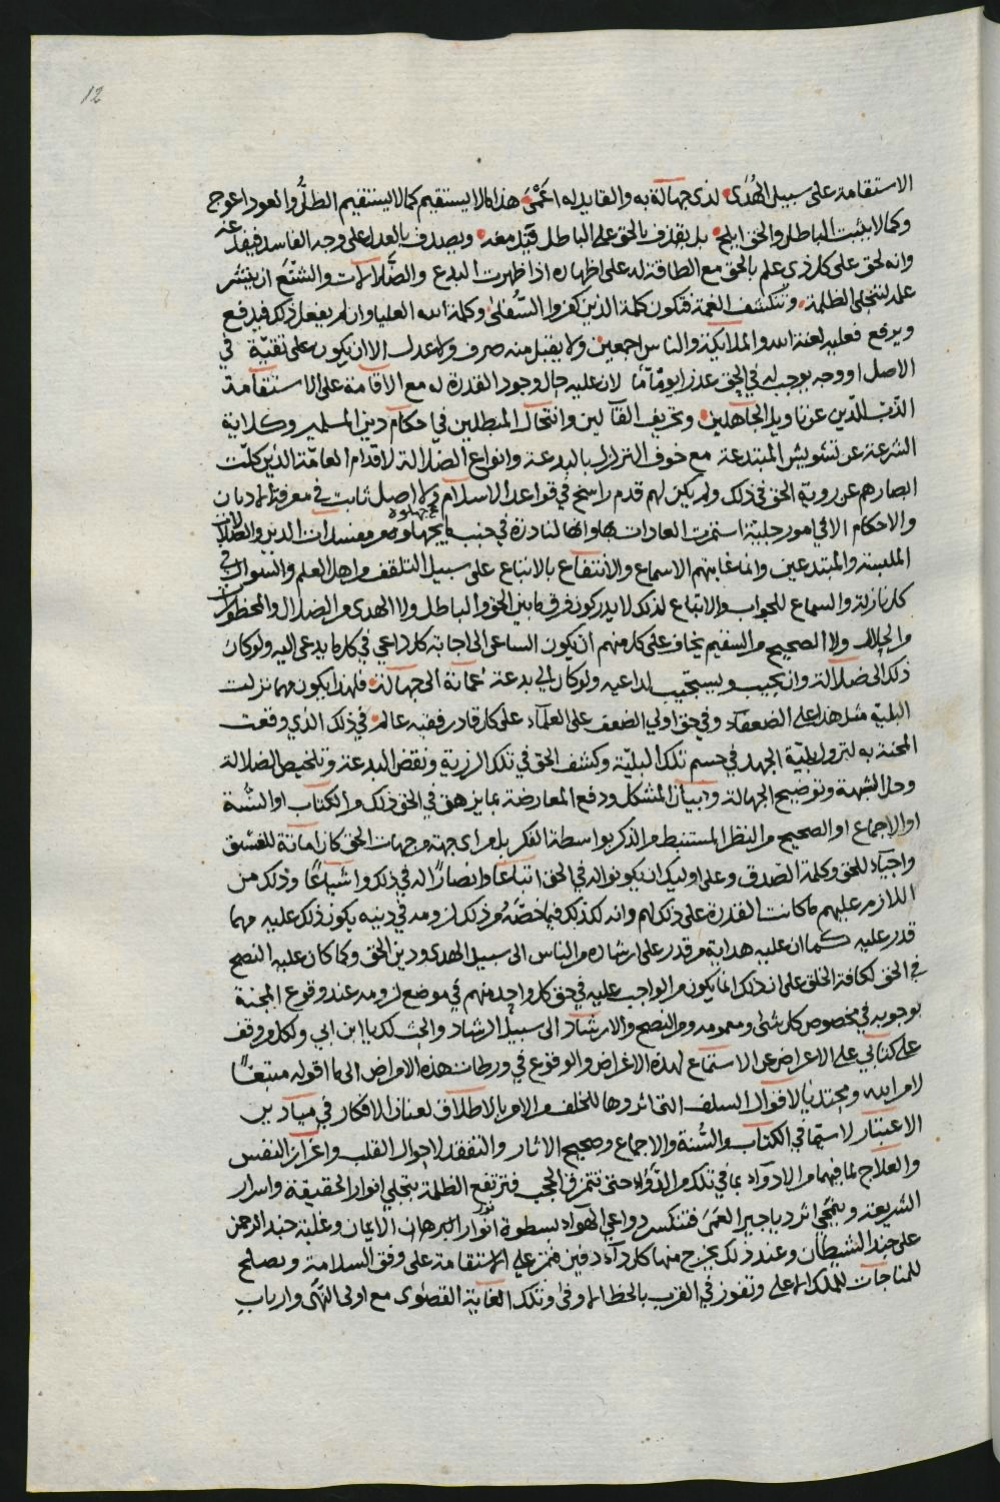 12
الاستقامة على سبيل الهُدَى لذى جهالة به والقايد له اعْمَى هذا ما لا يستقيم كما لا يستقيم الظلُّ والعود اعوج
وكما لا يثبت الباطل والحق ابلج بل يقذف بالحق على الباطل فيدمغه ويصدف بالعدل على وجه الفاسد فيفلد عنه
وانه لحق على كل ذى علم بالحق مع الطاقة له على اظهاره اذا ظهرت البدع والضّلالات والشنّع ان ينشر
علمه لتنجلى الظلمة وتنكشف الغمة فتكون كلمة الذين كفروا السُّفلى وكلمة الله العليا وان لم يفعل ذلك فيدفع
ويرفع فعليه لعنة الله والملايكة والناس اجمعين ولا يقبل منه صرف ولا عدل الا ان يكون على تقيّة في
الاصل او وجه يوجب له في الحق عذرا يوما ما لان عليه حال وجود القدرة له مع الاقامة على الاستقامة
الذبّ للدّين عن تاويل الجاهلين وتحريف الغالين وانتحال المبطلين في احكام دين المسلمين وكلاية
الشرعة عن تشويش المبتدعة مع خوف التزلزل بالبدعة وانواع الضلالة لاقدام العامّة الذين كلّت
ابصارهم عن روية الحق في ذلك ولم يكن لهم قدم راسخ في قواعد الاسلام ولا اصل ثابت في معرفة الاديان
والاحكام الا في امور جلية استمرت العادات بها وانها لنادرة في جنب ما يجهلوه من مفسدات الدين والضلالات
الملبسة والمبتدعين وانما غايتهم الاسماع والانتفاع بالاتباع على سبيل التلقف من اهل العلم والسوال في
كل نازلة والسماع للجواب والاتباع لذلك لا يدركون فرق ما بين الحق والباطل ولا الهدى من الضلال والمحظورات
من الحلال ولا الصحيح من السقيم يخاف على كل منهم ان يكون الساعى الى اجابة كل داعي في كل ما يدعى اليه ولو كان
ذلك الى ضلالة وان يجيب ويستجيب لداعيه ولو كان الى بدعة عُمانة الى جهالة فلهذا يكون مهما نزلت
البليّة مثل هذا على الضعفاء وفي حق اولي الضعف على العلماء على كل قادر فقيه عالم في ذلك الذي وقعت
المحنة به لنزول البليّة الجهد في حسم تلك البليّة وكشف الحق في تلك الرزية ونقض البدعة وتلخيص الضلالة
وحل الشبهة وتوضيح الجهالة وابيان المشكل ودفع المعارضة بما يزهق في الحق ذلك من الكتاب او السّنة
او الاجماع او الصحيح من النظر المستنبط من الذكر بواسطة الفكر بل من اى جهة من جهات الحق كان اماتة للفسق
واحياء للحق وكلمة الصّدق وعلى اوليك ان يكونوا له في الحق اتباعا وانصارًا له في ذلك واشياعًا وذلك من
اللازم عليهم ما كانت القدرة على ذلك لهم وانه لكذلك فيما خصّه من ذلك لزومه في دينه يكون ذلك عليه مهما
قدر عليه كما ان عليه هداية من قدر على ارشاده من الناس الى سبيل الهدى ودين الحق وكما كان عليه النصح
في الحق لكافة الخلق على ان ذلك انما يكون من الواجب عليه في حق كل واحد منهم في موضع لزومه عند وقوع المحنة
بوجوبه في مخصوص كل شئ ومعمومه ومن النصح والارشاد الى سبيل الرشاد والحث لك يا ابن ابي ولكل من وقف
على كتابي على الاعراض عن الاستماع لهذه الاغراض والوقوع في ورطات هذه الامراض الى ما اقوله متبعًا
لامر الله ومحتذيا لاقوال السلف التى اثروها للخلف من الامر بالاطلاق لعنان الافكار في ميادين
الاعتبار لا سيّما في الكتاب والسُّنة والاجماع وصحيح الاثار والتفقد لاحوال القلب واغرار النفس
والعلاج لما فيهما من الادواء بما في تلك من الدّواء حتى تتمزق الحجب فترتفع الظلمة بتجلي انوار الحقيقة واسرار
الشريعة وينمحي اثر دياجير العمَى فتنكسر دواعي الهواء بسطوة انوار نور البرهان الايمان وغلبة جند الرحمن
على جند الشيطان وعند ذلك يخرج منها كل داء دفين فتمز على الاستقامة على وفق السلامة وتصلح
للمناجات للملك الاعلى وتفوز في القرب بالحظ الاوفى وتلك الغاية القصوى مع اولى النهى وارباب